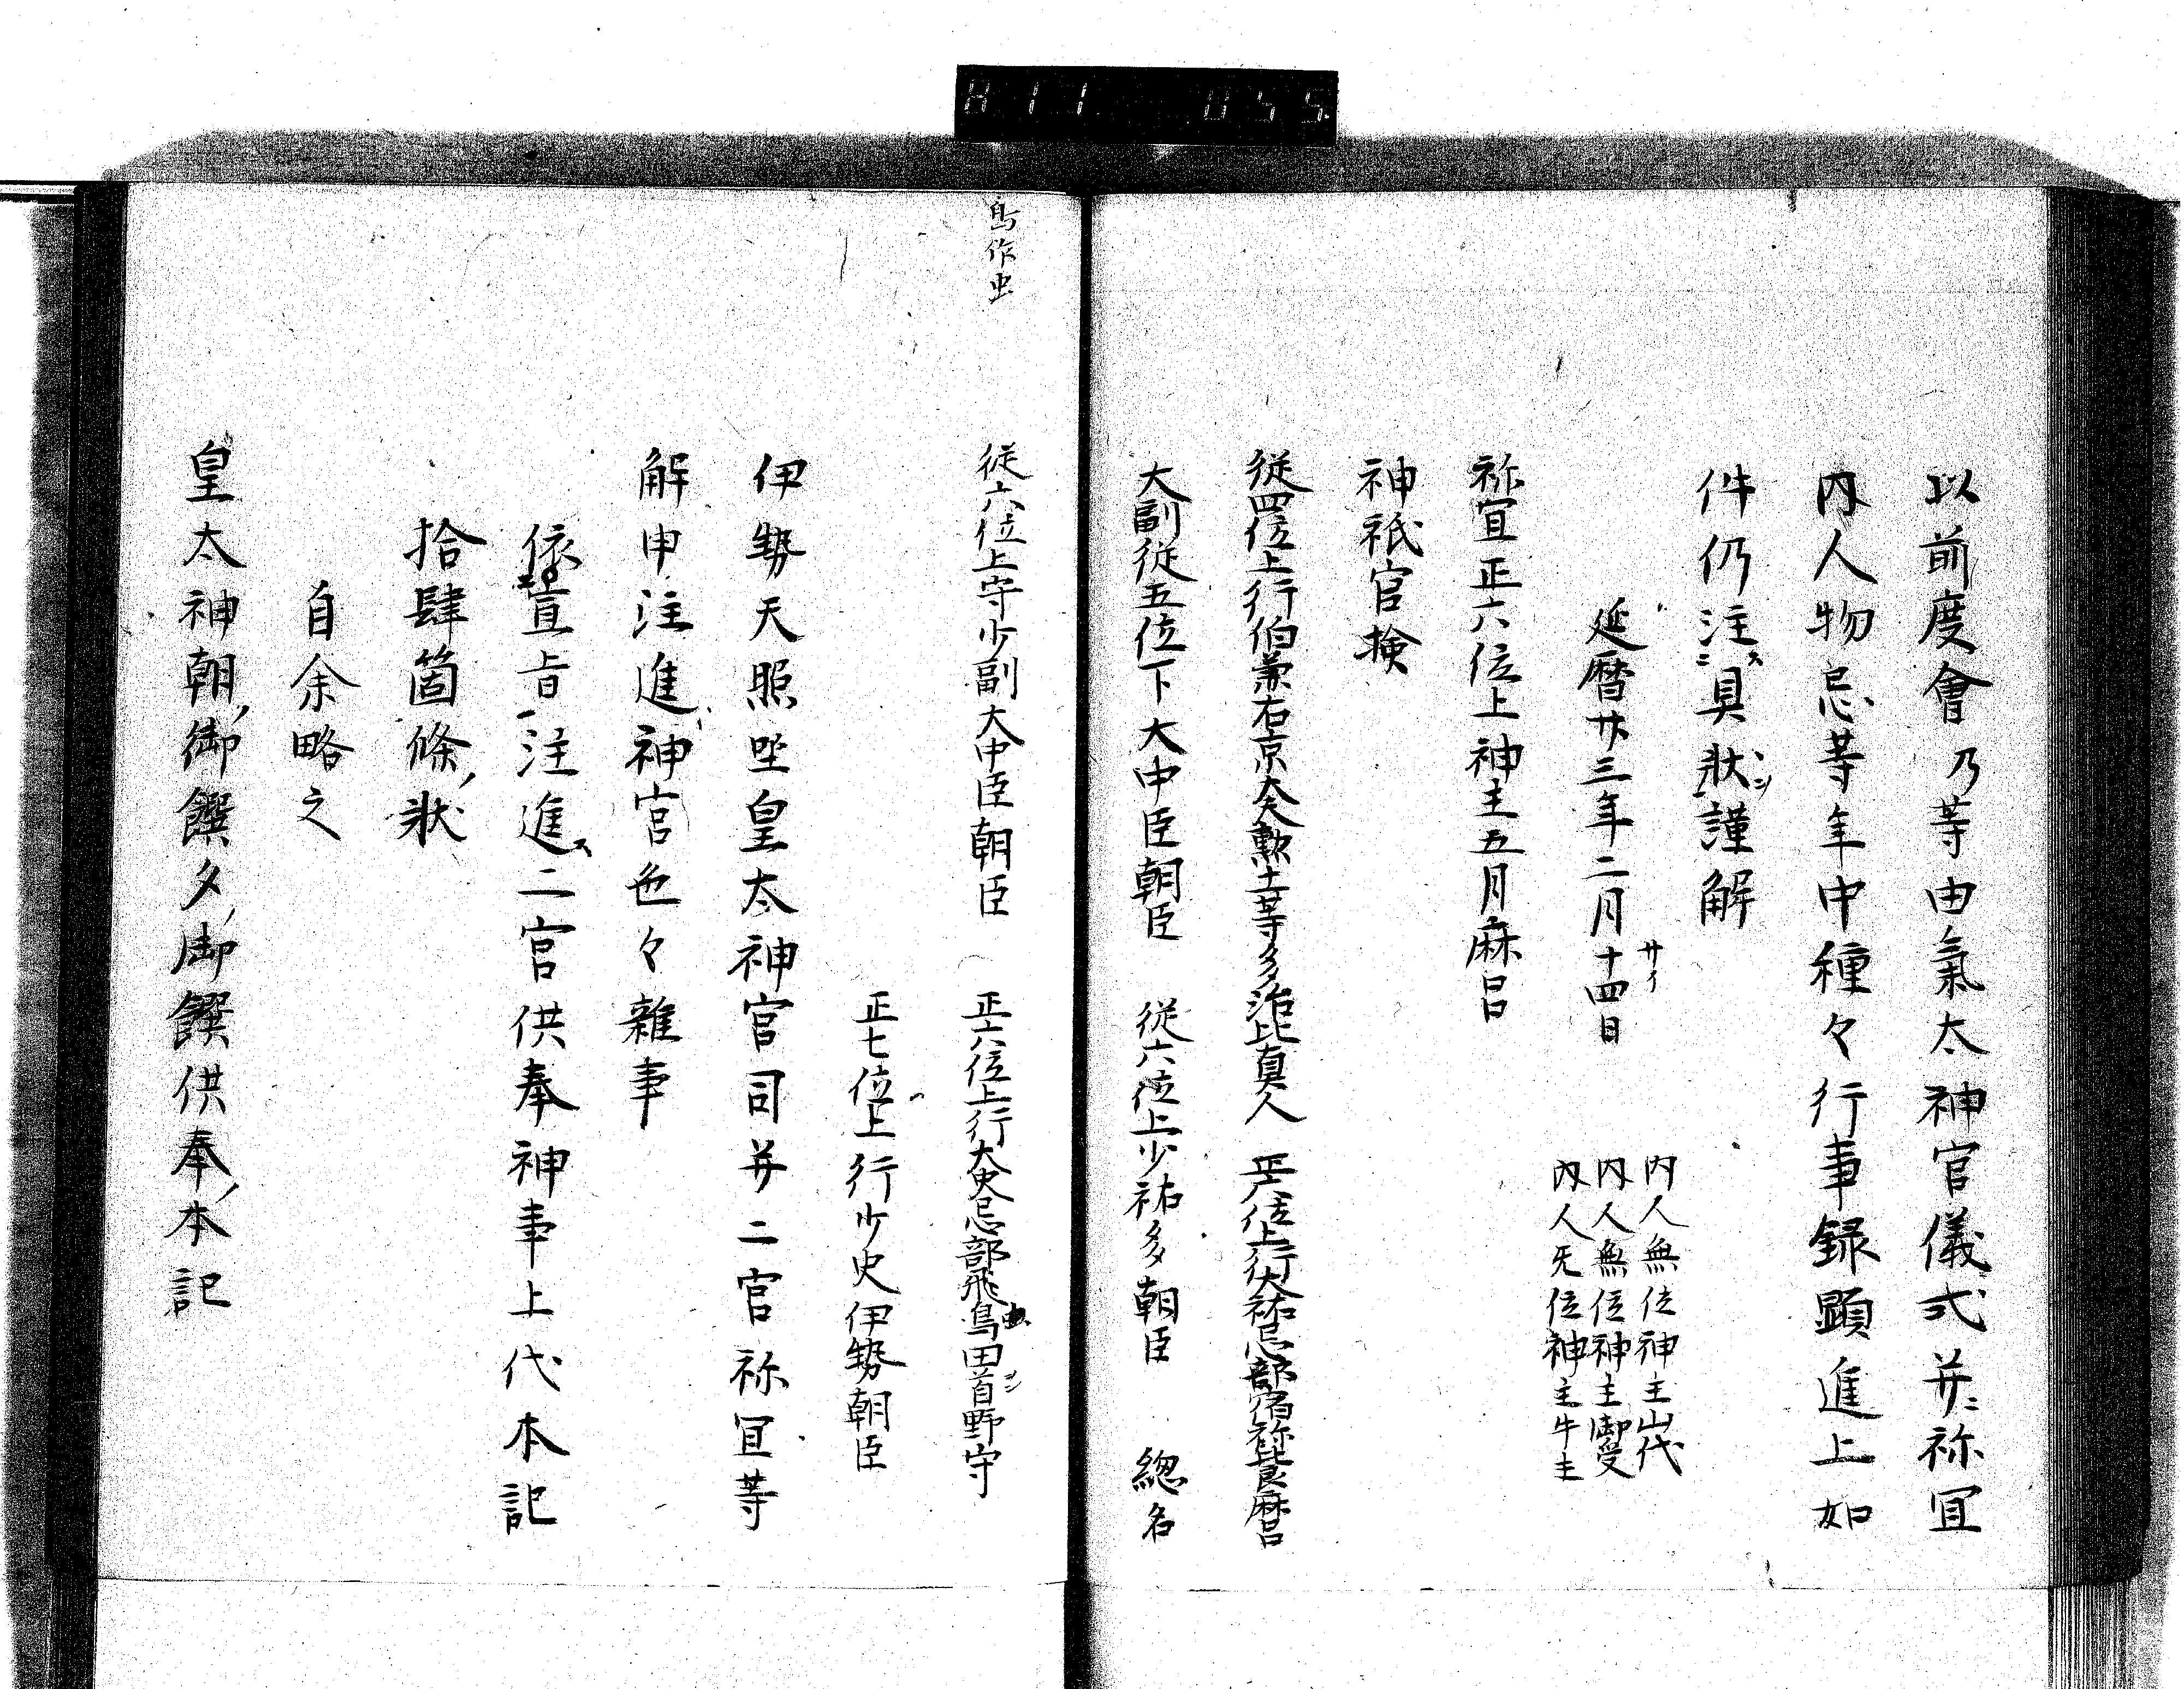 以前度會乃等由氣太神宮儀式并ニ祢冝
内人物忌等年中種々行事録顕進上如
件仍注ニス具状ヲシ謹解
延暦廿三年二月十四日
廿イ
内人無位神主山代
内人無位神主御受
内人无位神主牛主
祢冝正六位上神主五月麻呂
神祇官検
従四位上行伯兼右京大夫勲十一等多治比真人 正六位上行大祐忌部宿祢比良麻呂
大副従五位下大中臣朝臣 従六位上少祐多朝臣 總名
鳥作虫
従六位上守少副大中臣朝臣 正六位上行大史忌部飛鳥田首野守
虫
正七位上行少史伊勢朝臣
伊勢天照坐皇太神宮司并二宮祢冝等
解申注進神宮色々雜事
依宣旨注進ス二宮供奉神事上代本記
拾肆箇條ノ状
自余略之
皇太神朝ノ御饌夕ノ御饌供奉ノ本記
811 055